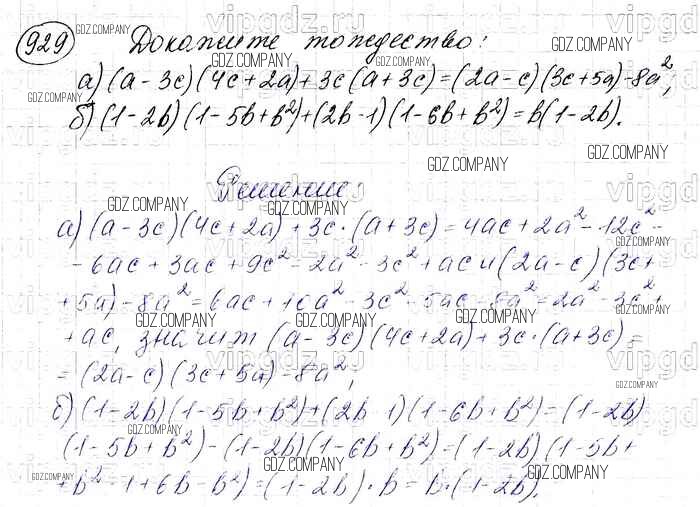 929 Докажите тождество:
а) (a-3c)(4c+2a)+3c(a+3c)=(2a-c)(3c+5a)-8a²;
б) (1-2b)(1-5b+b²)+(2b-1)(1-6b+b²)=b(1-2b).
Решение:
а) (a-3c)(4c+2a)+3c·(a+3c)=4ac+2a²-12c²-
-6ac+3ac+9c²=2a²-3c²+ac и (2a-c)(3c+
+5a)-8a²=6ac+10a²-3c²-5ac-8a²=2a²-3c²+
+ac, значит (a-3c)(4c+2a)+3c·(a+3c)=
=(2a-c)(3c+5a)-8a²;
б) (1-2b)(1-5b+b²)+(2b-1)(1-6b+b²)=(1-2b)
(1-5b+b²)-(1-2b)(1-6b+b²)=(1-2b)(1-5b+
+b²-1+6b-b²)=(1-2b)·b=b·(1-2b).
GDZ.COMPANY
vipgdz.ru